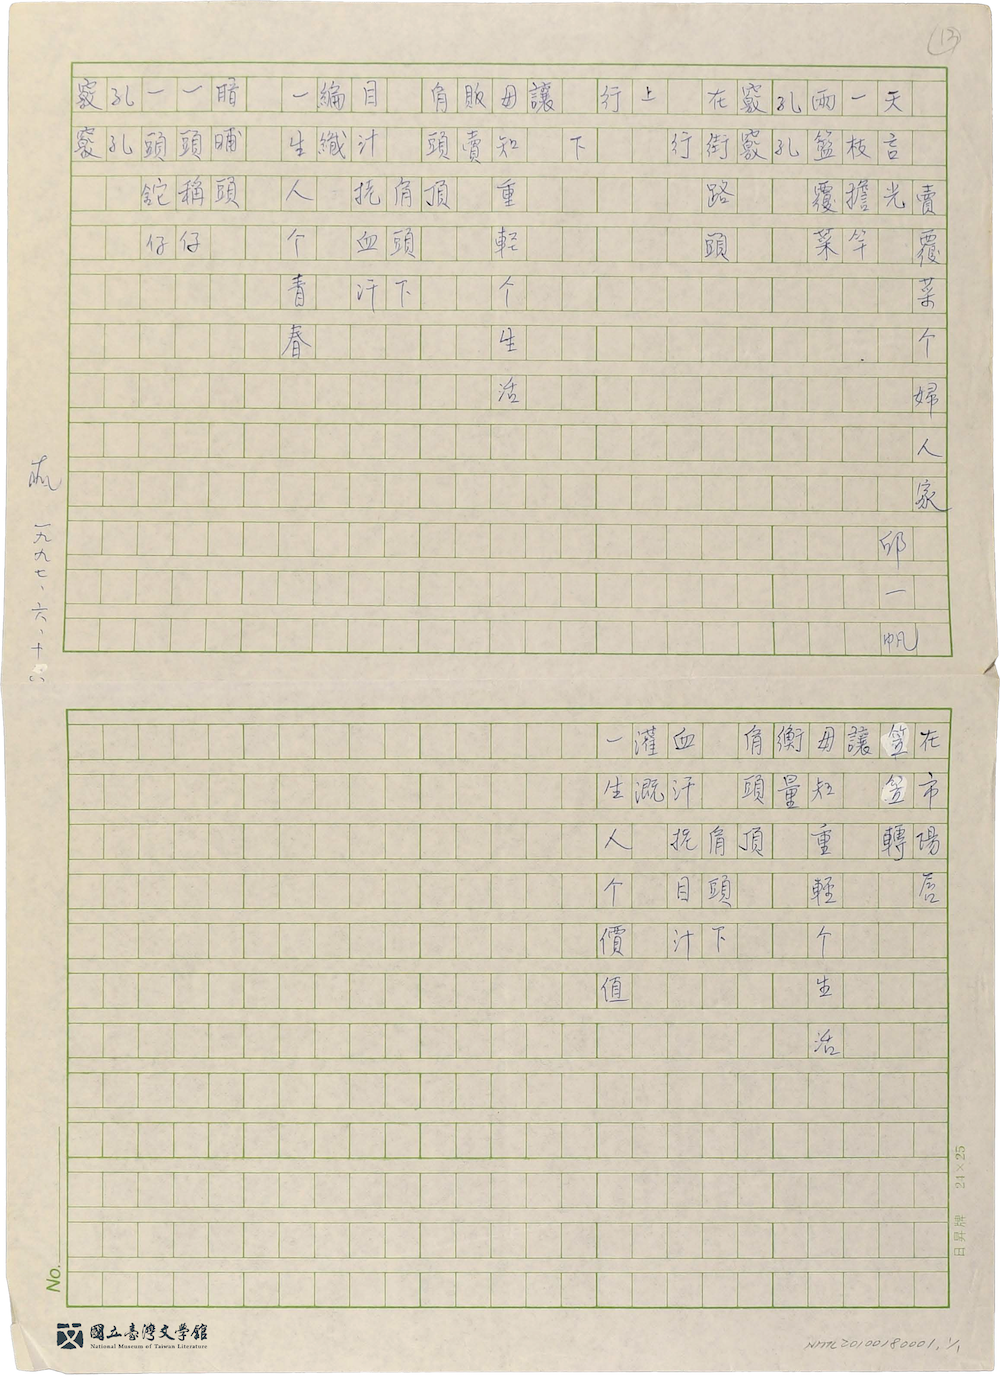 13
賣覆菜个婦人家
邱一帆
天言光
一枝擔竿
兩籃覆菜
孔孔
竅竅
在街路頭
行
上
行
下
讓
毋知重輕个生活
販賣
肩頭頂
肩頭下
目汁 血汗
編織
一生人个青春
暗晡頭
一頭稱仔
一頭鉈仔
孔孔
竅竅
帆 一九九七、六、十
在市場唇
笠笠轉
讓
毋知重輕个生活
衡量
肩頭頂
肩頭下
血汗 目汁
灌溉
一生人个價值
日昇牌 24×25
No.
國立臺灣文學館
National Museum of Taiwan Literature
NMTL20100180001, 1/1